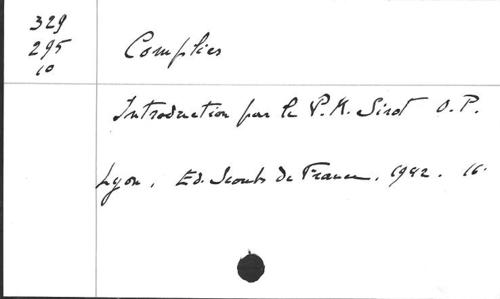 329
295
10
Complies
Introduction par le P.M. Sirot O.P.
Lyon, Ed. Scouts de France, 1942. 16.